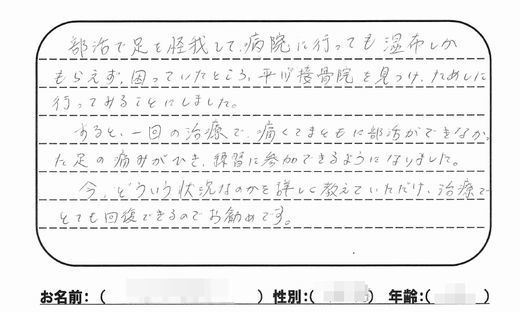 部活で足を怪我して、病院に行っても湿布しか
もらえず、困っていたところ、平川接骨院を見つけ、ためしに
行ってみることにしました。
すると、一回の治療で、痛くてまともに部活ができなかっ
た足の痛みがひき、練習に参加できるようになりました。
今、どういう状況なのかを詳しく教えていただけ、治療で
とても回復できるのでお勧めです。
お名前：（　　）性別：（　　）年齢：（　　）